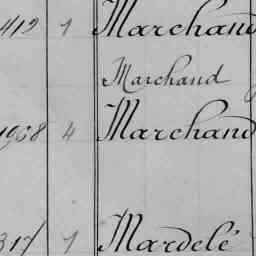 412 1 Marchand
Marchand
1908 4 Marchand
317 1 Mardelé